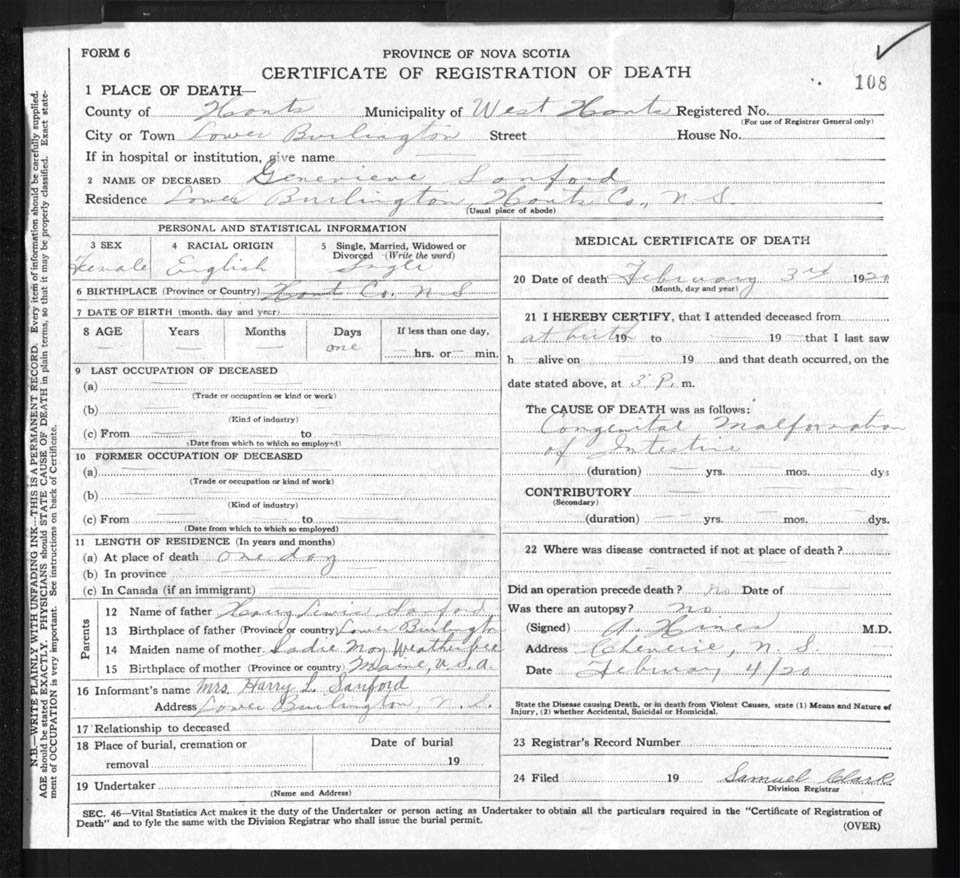 FORM 6
PROVINCE OF NOVA SCOTIA
CERTIFICATE OF REGISTRATION OF DEATH
108
1 PLACE OF DEATH—
County of Hants Municipality of West Hants Registered No.
(For use of Registrar General only)
City or Town Lower Burlington Street House No.
If in hospital or institution, give name
2 NAME OF DECEASED Genevieve Sanford
Residence Lower Burlington, Hants Co., N.S.
(Usual place of abode)
PERSONAL AND STATISTICAL INFORMATION
3 SEX 4 RACIAL ORIGIN 5 Single, Married, Widowed or Divorced (Write the word)
Female English Single
6 BIRTHPLACE (Province or Country) Hants Co. N S
7 DATE OF BIRTH (month, day and year)
8 AGE Years Months Days If less than one day,
— — one hrs. or — min.
9 LAST OCCUPATION OF DECEASED
(a)
(Trade or occupation or kind or work)
(b)
(Kind of industry)
(c) From to
(Date from which to which so employed)
10 FORMER OCCUPATION OF DECEASED
(a)
(Trade or occupation or kind of work)
(b)
(Kind of industry)
(c) From to
(Date from which to which so employed)
11 LENGTH OF RESIDENCE (In years and months)
(a) At place of death one day
(b) In province
(c) In Canada (if an immigrant)
Parents
12 Name of father Harry Lewis Sanford
13 Birthplace of father (Province or country) Lower Burlington
14 Maiden name of mother Sadie May Weatherbee
15 Birthplace of mother (Province or country) Maine, U.S.A.
16 Informant's name Mrs. Harry L. Sanford
Address Lower Burlington, N.S.
17 Relationship to deceased
18 Place of burial, cremation or removal Date of burial 19
19 Undertaker
(Name and Address)
MEDICAL CERTIFICATE OF DEATH
20 Date of death February 3rd 1920
(Month, day and year)
21 I HEREBY CERTIFY, that I attended deceased from
at birth 19 to 19 that I last saw
h alive on 19 and that death occurred, on the
date stated above, at 3 P. m.
The CAUSE OF DEATH was as follows:
Congenital Malformation
of Intestine
(duration) yrs. mos. dys
CONTRIBUTORY
(Secondary)
(duration) yrs. mos. dys.
22 Where was disease contracted if not at place of death?
Did an operation precede death? No Date of
Was there an autopsy? No
(Signed) A. Hines M.D.
Address Cheverie, N.S.
Date February 4/20
State the Disease causing Death, or in death from Violent Causes, state (1) Means and Nature of
Injury, (2) whether Accidental, Suicidal or Homicidal.
23 Registrar's Record Number
24 Filed 19 Samuel Clark
Division Registrar
SEC. 46—Vital Statistics Act makes it the duty of the Undertaker or person acting as Undertaker to obtain all the particulars required in the "Certificate of Registration of
Death" and to fyle the same with the Division Registrar who shall issue the burial permit.
(OVER)
N.B.—WRITE PLAINLY WITH UNFADING INK—THIS IS A PERMANENT RECORD. Every item of information should be carefully supplied.
AGE should be stated EXACTLY. PHYSICIANS should STATE CAUSE OF DEATH in plain terms, so that it may be properly classified. Exact state-
ment of OCCUPATION is very important. See instructions on back of Certificate.